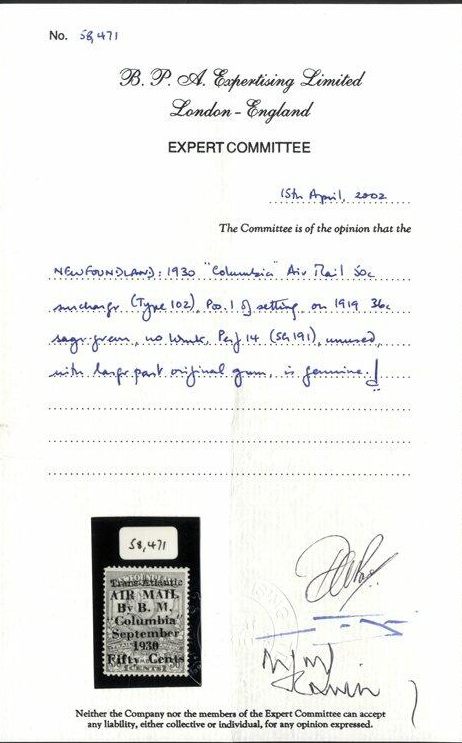 No. 58,471
B. P. A. Expertising Limited
London - England
EXPERT COMMITTEE
15th April, 2002
The Committee is of the opinion that the
NEWFOUNDLAND: 1930 "Columbia" Air Mail 50c
surcharge (Type 102), Pos. 1 of setting, on 1919 36c
sage-green, no wmk, Perf 14 (SG 191), unused,
with large part original gum, is genuine.
58,471
Trans-Atlantic
AIR MAIL
By B. M.
"Columbia"
September
1930
Fifty Cents
Neither the Company nor the members of the Expert Committee can accept
any liability, either collective or individual, for any opinion expressed.